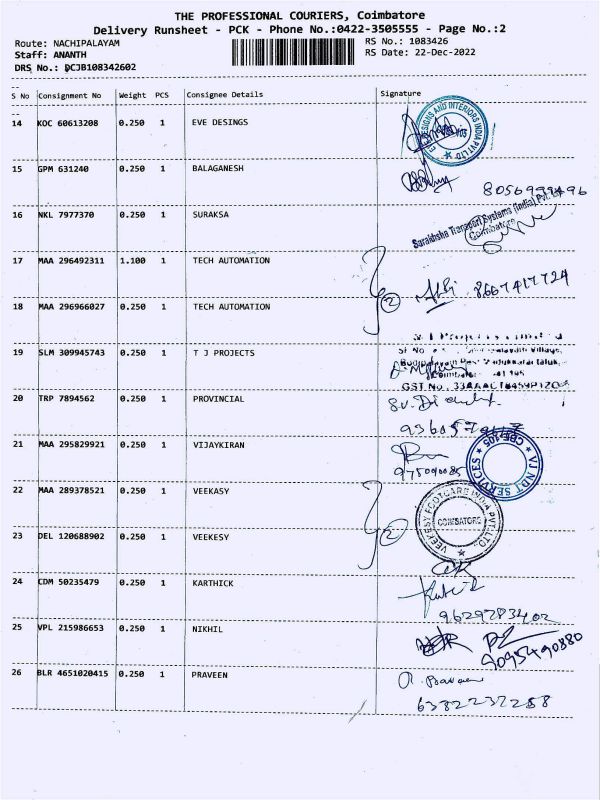 THE PROFESSIONAL COURIERS, Coimbatore
Delivery Runsheet - PCK - Phone No.:0422-3505555 - Page No.:2
Route: NACHIPALAYAM RS No.: 1083426
Staff: ANANTH RS Date: 22-Dec-2022
DRS No.: DCJB108342602
S No Consignment No Weight PCS Consignee Details Signature
14 KOC 60613208 0.250 1 EVE DESINGS
DESIGNS AND INTERIORS INDIA PVT LTD
15 GPM 631240 0.250 1 BALAGANESH
8056999496
16 NKL 7977370 0.250 1 SURAKSA
Suraksha Transport Systems (India) Pvt.
Coimbatore
17 MAA 296492311 1.100 1 TECH AUTOMATION
2 8667417724
18 MAA 296966027 0.250 1 TECH AUTOMATION
19 SLM 309945743 0.250 1 T J PROJECTS
Village,
Taluk,
GST No.
20 TRP 7894562 0.250 1 PROVINCIAL
21 MAA 295829921 0.250 1 VIJAYKIRAN
VJ NDT SERVICES
22 MAA 289378521 0.250 1 VEEKASY
VEEKESY FOOTCARE INDIA PVT. LTD.
COIMBATORE
23 DEL 120688902 0.250 1 VEEKESY
2
24 CDM 50235479 0.250 1 KARTHICK
9629783402
25 VPL 215986653 0.250 1 NIKHIL
9095490880
26 BLR 4651020415 0.250 1 PRAVEEN
6382237258